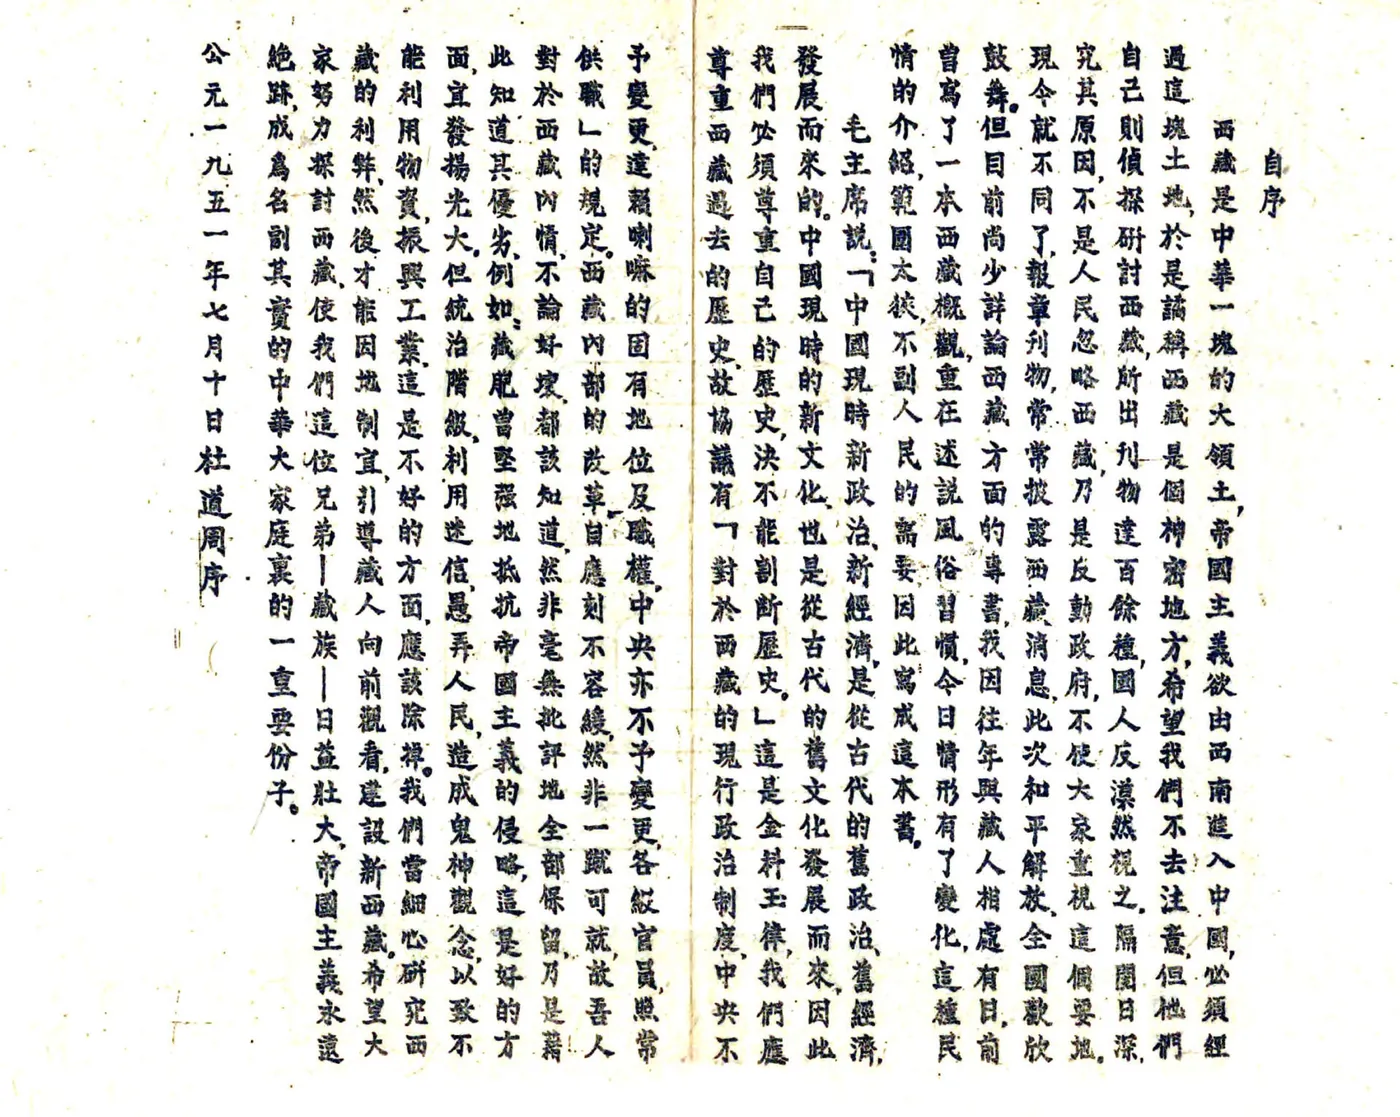 自序
西藏是中華一塊的大領土，帝國主義欲由西南進入中國，必須經
過這塊土地，於是謠稱西藏是個神密地方，希望我們不去注意，但牠們
自己則偵探研討西藏，所出刊物達百餘種，國人反漠然視之，隔閡日深，
究其原因，不是人民忽略西藏，乃是反動政府，不使大家重視這個要地。
現今就不同了，報章刊物，常常披露西藏消息，此次和平解放，全國歡欣
鼓舞。但目前尚少詳論西藏方面的專書，我因往年與藏人相處有日，前
曾寫了一本西藏概觀，重在述說風俗習慣，今日情形有了變化，這種民
情的介紹，範圍太狹，不副人民的需要因此寫成這本書。
毛主席説：「中國現時新政治、新經濟，是從古代的舊政治、舊經濟，
發展而來的。中國現時的新文化、也是從古代的舊文化發展而來，因此
我們必須尊重自己的歷史，決不能割斷歷史。」這是金科玉律，我們應
尊重西藏過去的歷史，故協議有「對於西藏的現行政治制度，中央不
予變更，達賴喇嘛的固有地位及職權，中央亦不予變更，各級官員，照常
供職」的規定。西藏內部的改革，自應刻不容緩，然非一蹴可就，故吾人
對於西藏內情，不論好壞，都該知道，然非毫無批評地全部保留，乃是藉
此知道其優劣，例如：藏胞曾堅强地抵抗帝國主義的侵略，這是好的方
面，宜發揚光大。但統治階級，利用迷信，愚弄人民，造成鬼神觀念，以致不
能利用物資，振興工業，這是不好的方面，應該除掉。我們當細心研究西
藏的利弊，然後才能因地制宜，引導藏人向前觀看，建設新西藏。希望大
家努力探討西藏，使我們這位兄弟—藏族—日益壯大，帝國主義永遠
絕跡，成爲名副其實的中華大家庭裏的一重要份子。
公元一九五一年七月十日杜道周序